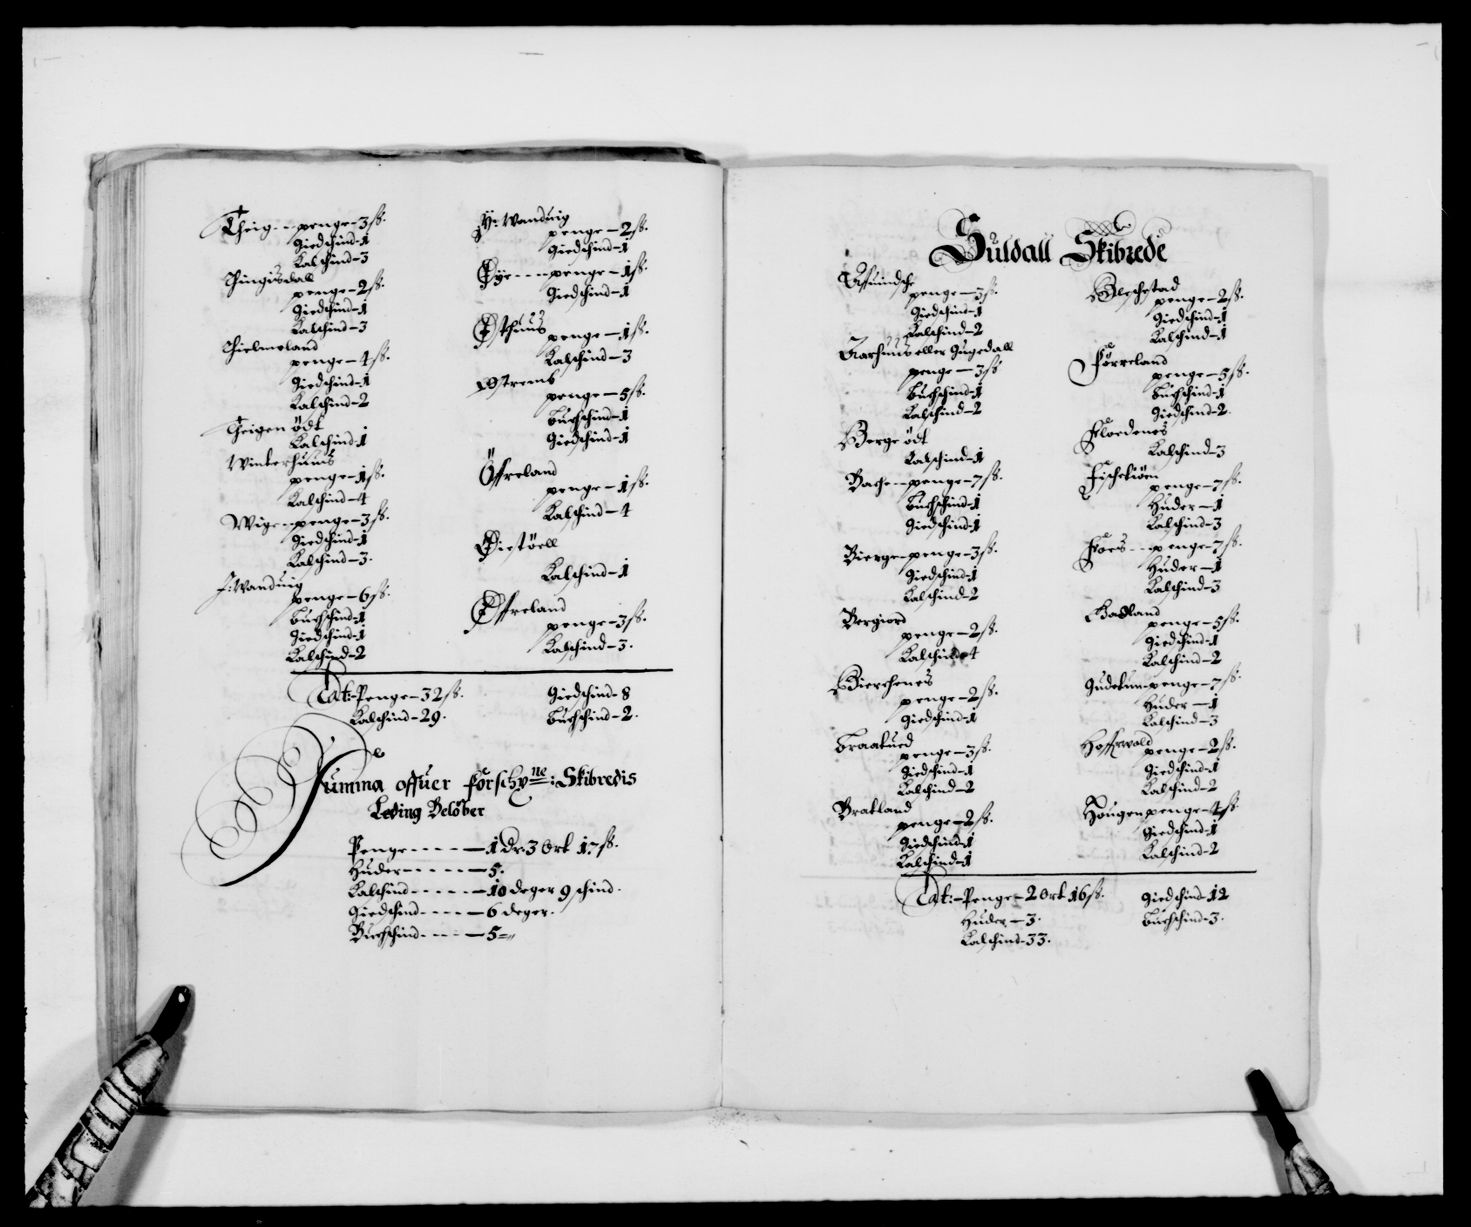 Theig - - penge - 3 ſß.
Giedschind - 1
Kalschind - 3
Thingisdall
penge - 2 ſß.
Giedschind - 1
Kalschind - 3
Thielmeland
penge - 4 ſß.
Giedschind - 1
Kalschind - 2
Theigen ödt
Kalschind 1
Winterhuus
penge - 1 ſß.
Kalschind - 4
Wige - penge - 3 ſß.
Giedschind - 1
Kalschind - 3.
J: Wanduig
penge - 6 ſß.
Buchschind - 1
Giedschind - 1
Kalschind - 2
Y: Wanduig
penge - 2 ſß.
Giedschind - 1
Øye - - - - penge - 1 ſß.
Giedschind - 1
Østhuus
penge - 1 ſß.
Kalschind - 3
Østremb
penge - 5 ſß.
Buchschind - 1
Giedschind - 1
Öffreland
penge - 1 ſß.
Kalschind - 4
Øiestöell
Kalschind - 1
Øffreland
penge - 3 ſß.
Kalschind - 3.
Lat: - Penge - 32 ſß.
Giedschind - 8
Kalschind - 29.
Buchschind - 2.
Summa offuer forschne: Skibredis
Leding Belöber
Penge - - - - - 1 Dr 3 Ort 17 ſß.
Huder - - - - - 5.
Kalschind - - - - - 10 deger 9 schind.
Giedschind - - - - 6 deger.
Buchschind - - - - 5 =
Suldall Skibrede
penge - 3 ſß.
Giedschind - 1
Kalschind - 2
Aarhuus eller Gugedall
penge - 3 ſß
Buchschind - 1
Kalschind - 2
Berge ödt
Kalschind - 1
Bache - - penge - 7 ſß.
Buchschind - 1
Giedschind - 1
Bierge - penge - 3 ſß.
Giedschind - 1
Kalschind - 2
Bergiord
penge - 2 ſß.
Kalschind 4
Bierchenes
penge - 2 ſß.
Giedschind - 1
Braatued
penge - 3 ſß.
Giedschind - 1
Kalschind - 2
Bratland
penge - 2 ſß.
Giedschind - 1
Kalschind - 1
Blechstad
penge - 2 ſß.
Giedschind - 1
Kalschind - 1
Førreland
penge - 5 ſß.
Buchschind - 1
Giedschind - 2.
Floedenes
Kalschind - 3
Fischekiöen
penge - 7 ſß.
Huder - 1
Kalschind - 3
Foes - - penge - 7 ſß.
Huder - 1
Kalschind - 3
Gadland
penge - 5 ſß.
Giedschind - 1
Kalschind - 2
Gudekun - penge - 7 ſß.
Huder - 1
Kalschind - 3
Hoffrwald
penge - 2 ſß.
Giedschind - 1
Kalschind - 2
Hougen penge - 4 ſß
Giedschind - 1
Kalschind - 2
Lat: - Penge - 2 Ort 16 ſß.
Giedschind - 12
Huder - 3.
Buchschind - 3.
Kalschind - 33.